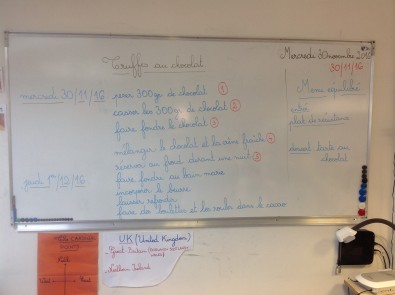 Truffes au chocolat
Mercredi 30 novembre 2016
30/11/16
mercredi 30/11/16
peser 300g de chocolat ①
casser les 300g de chocolat ②
faire fondre le chocolat ③
mélanger le chocolat et la crème fraîche ④
réserver au froid durant une nuit ⑤
jeudi 1er/12/16
faire fondre au bain marie
incorporer le beurre
laisser refroidir
faire des boulettes et les rouler dans le cacao
Menu équilibré
entrée
plat de résistance
dessert tarte au chocolat
UK (United Kingdom)
Great Britain